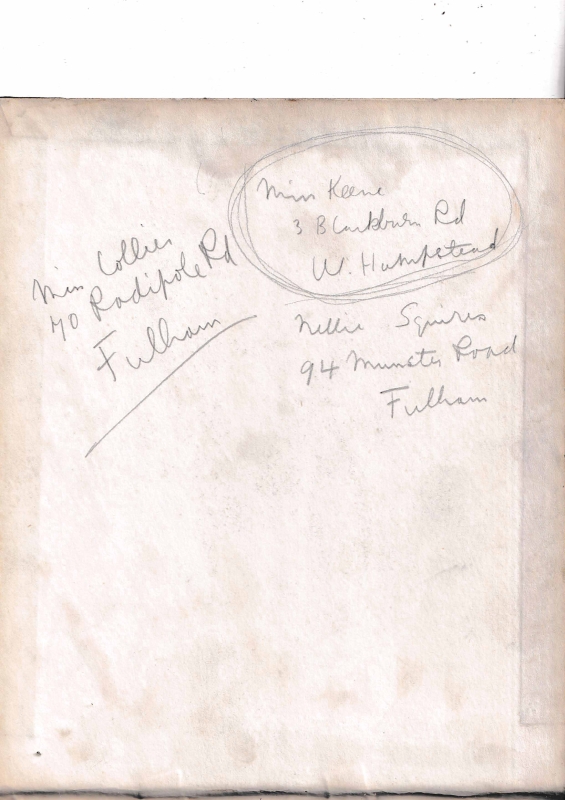 Miss Keene
3 Blackburn Rd
W. Hampstead
Miss Collier
70 Radipole Rd
Fulham
Nellie Squires
94 Munster Road
Fulham